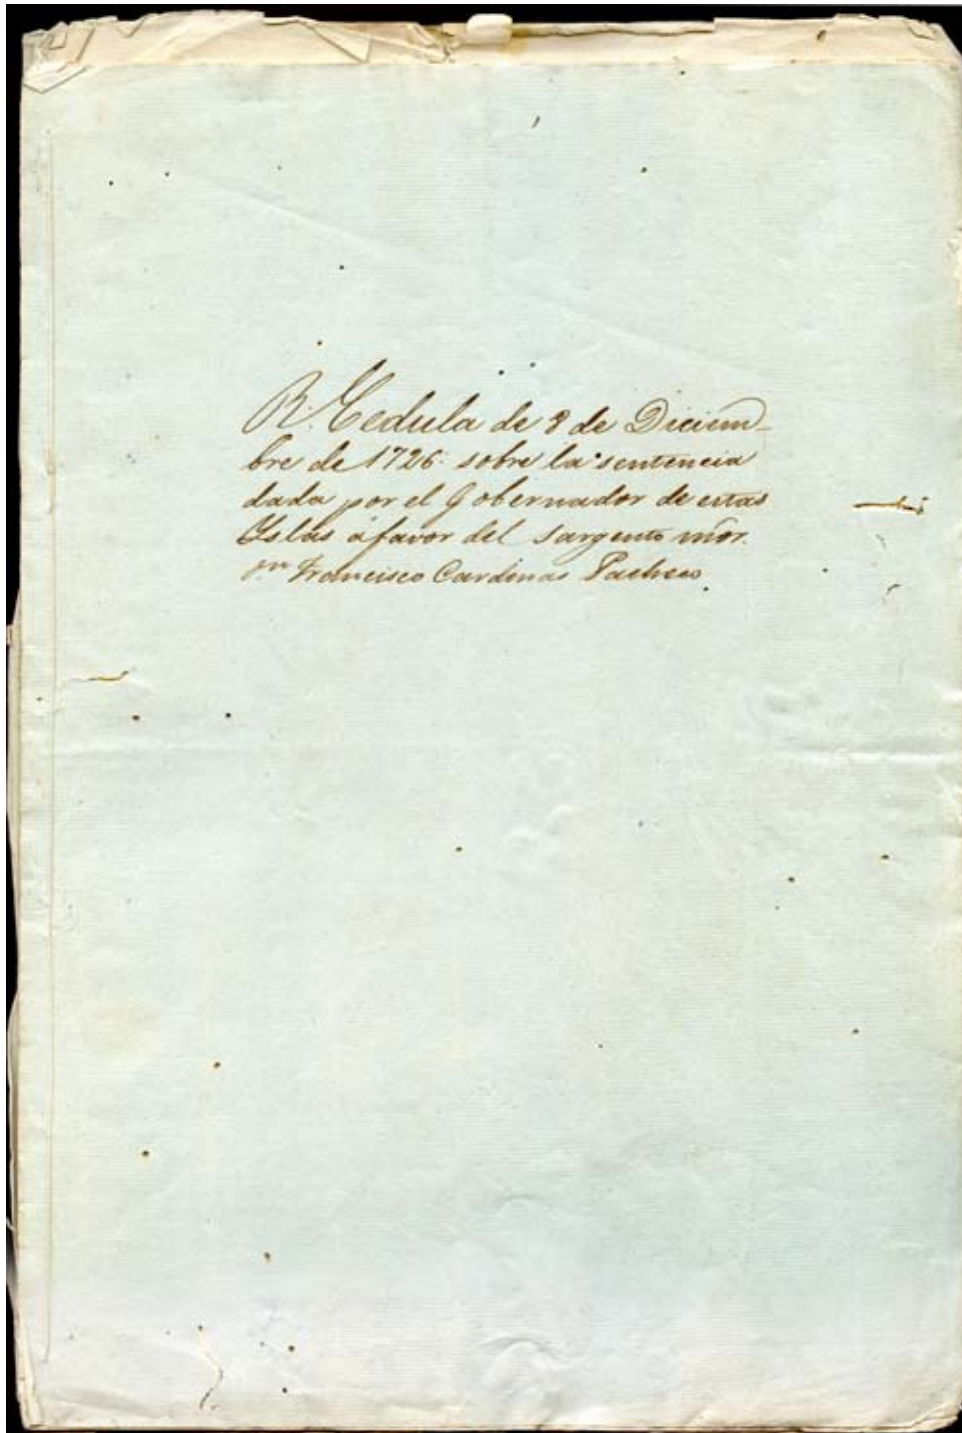 R. Cedula de 8 de Diciem-
bre de 1726. sobre la sentencia
dada por el Gobernador de estas
Yslas á favor del Sargento mor.
Dn Francisco Cardenas Pacheco.